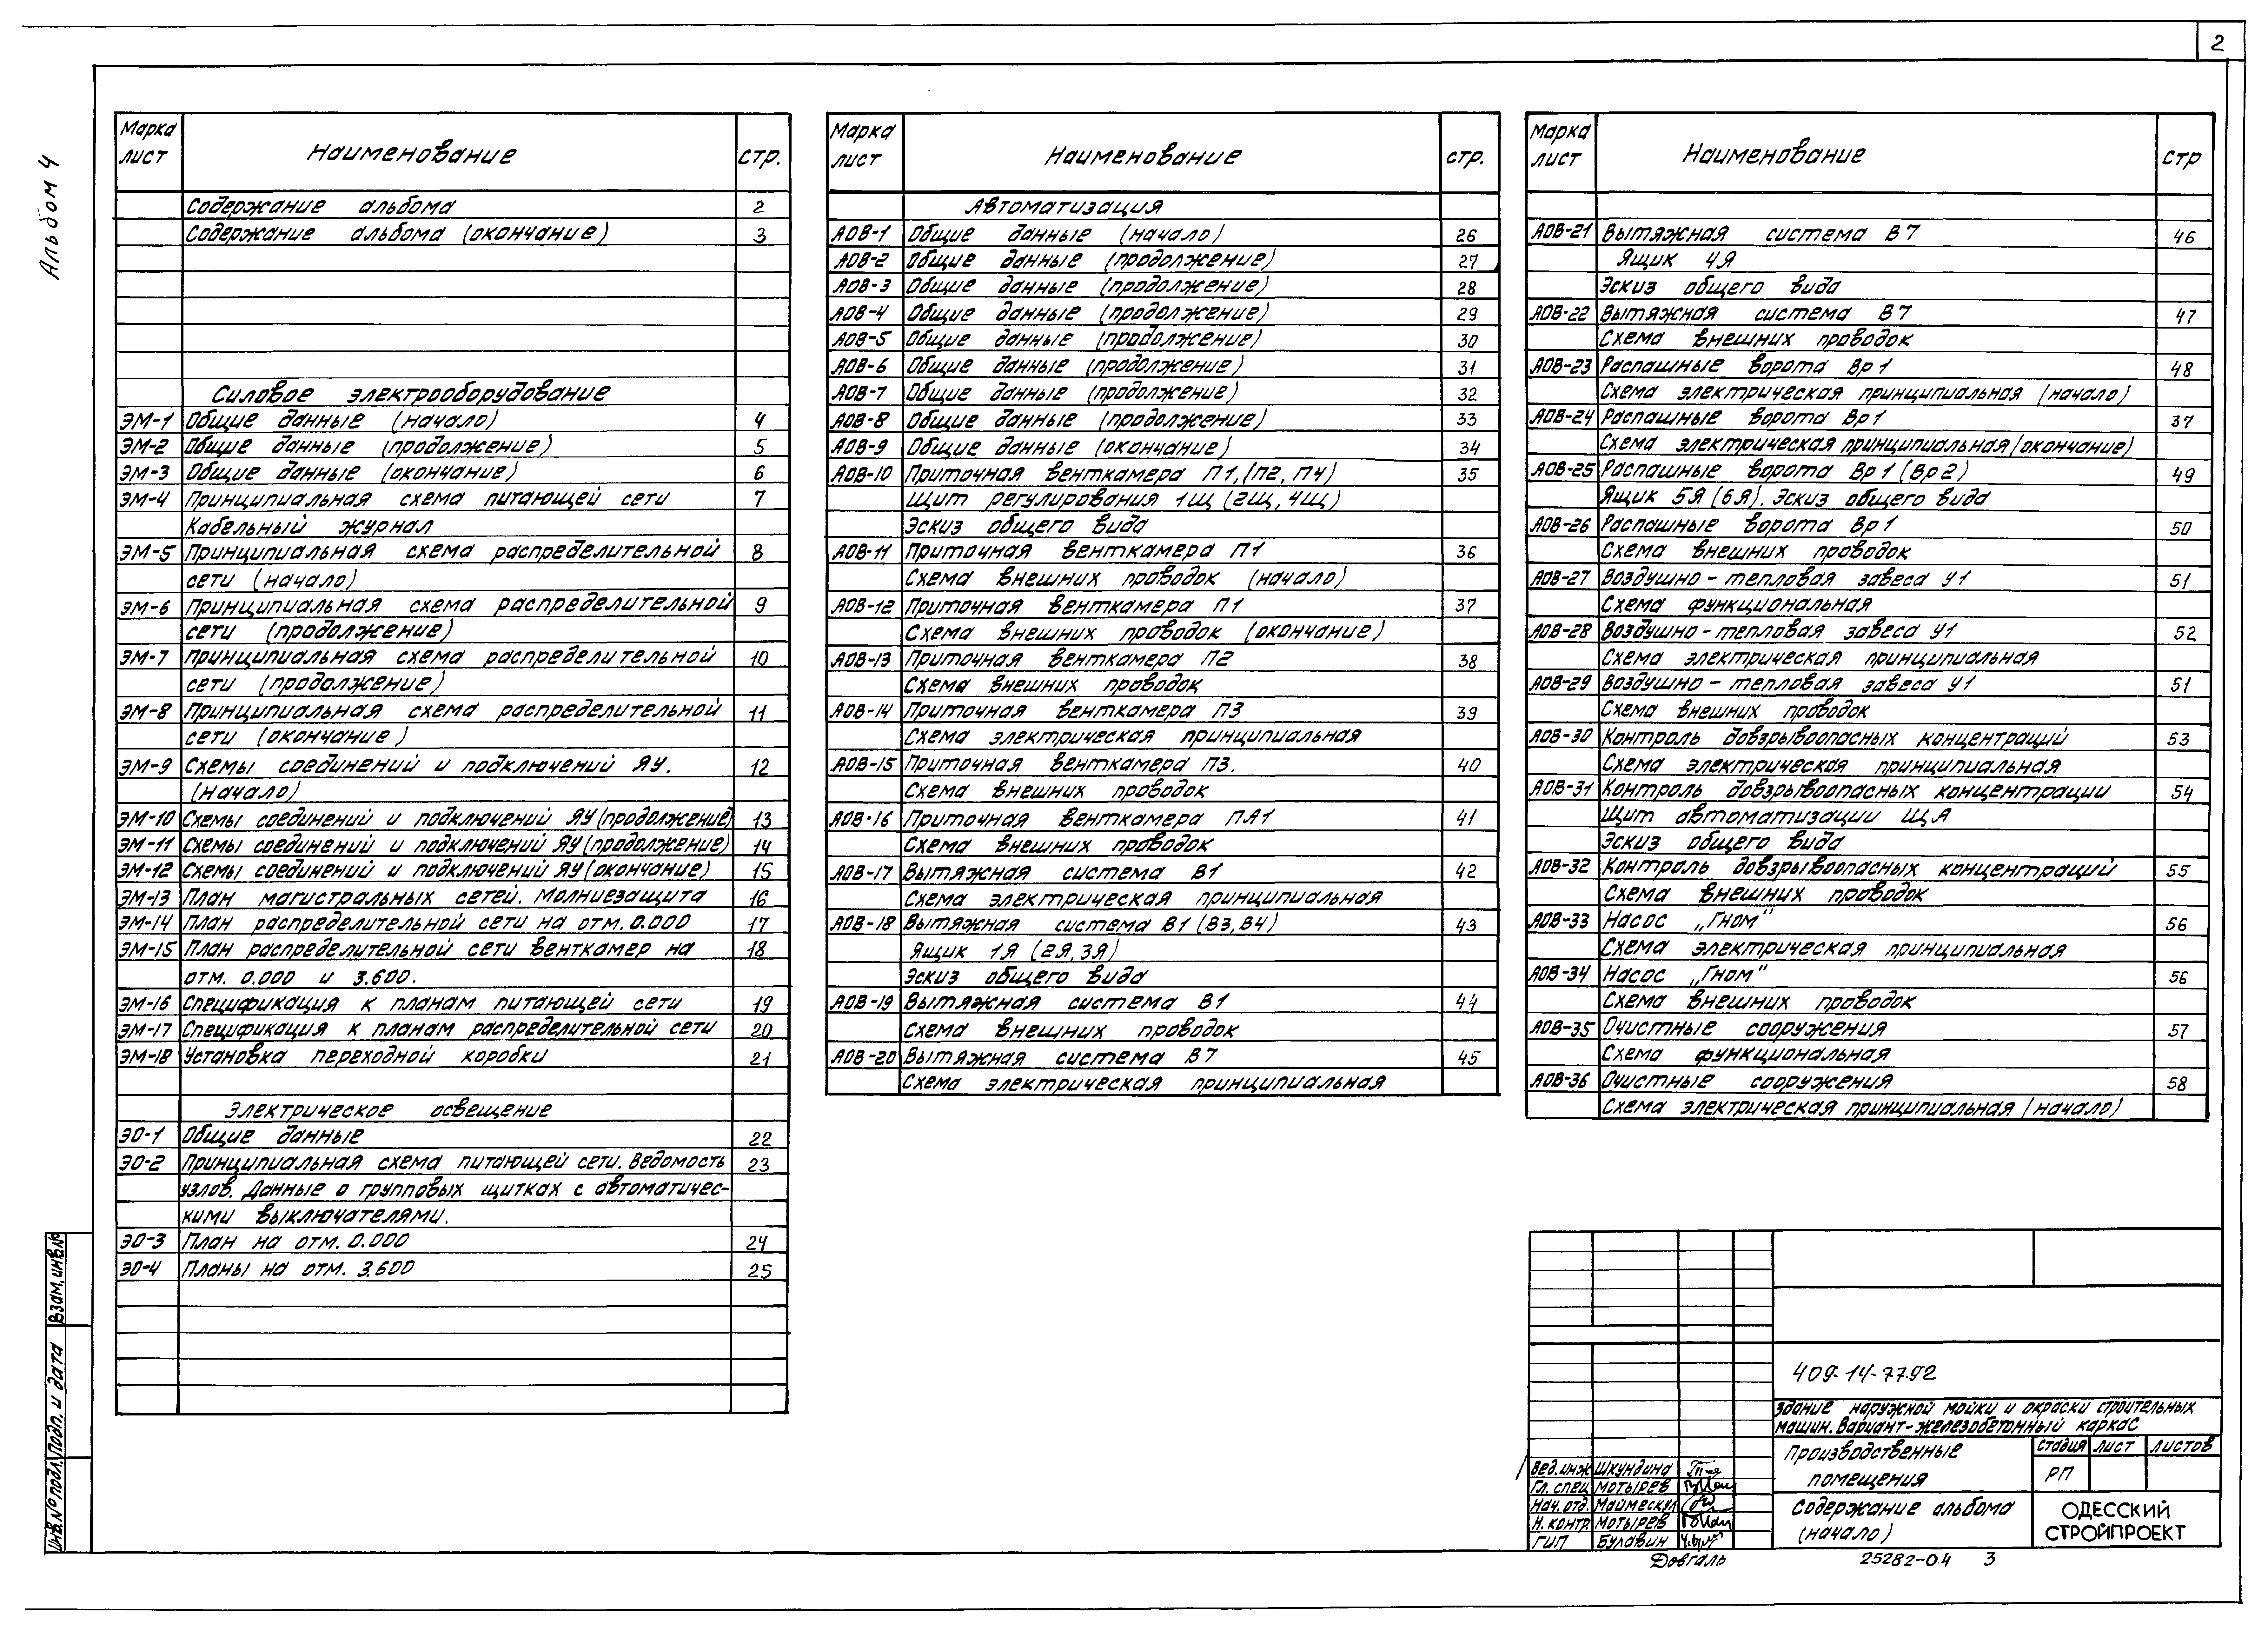 2
Альбом 4
Марка лист Наименование стр.
Содержание альбома 2
Содержание альбома (окончание) 3
Силовое электрооборудование
ЭМ-1 Общие данные (начало) 4
ЭМ-2 Общие данные (продолжение) 5
ЭМ-3 Общие данные (окончание) 6
ЭМ-4 Принципиальная схема питающей сети 7
Кабельный журнал
ЭМ-5 Принципиальная схема распределительной 8
сети (начало)
ЭМ-6 Принципиальная схема распределительной 9
сети (продолжение)
ЭМ-7 Принципиальная схема распределительной 10
сети (продолжение)
ЭМ-8 Принципиальная схема распределительной 11
сети (окончание)
ЭМ-9 Схемы соединений и подключений ЯУ. 12
(начало)
ЭМ-10 Схемы соединений и подключений ЯУ (продолжение) 13
ЭМ-11 Схемы соединений и подключений ЯУ (продолжение) 14
ЭМ-12 Схемы соединений и подключений ЯУ (окончание) 15
ЭМ-13 План магистральных сетей. Молниезащита 16
ЭМ-14 План распределительной сети на отм. 0.000 17
ЭМ-15 План распределительной сети венткамер на 18
отм. 0.000 и 3.600.
ЭМ-16 Спецификация к планам питающей сети 19
ЭМ-17 Спецификация к планам распределительной сети 20
ЭМ-18 Установка переходной коробки 21
Электрическое освещение
ЭО-1 Общие данные 22
ЭО-2 Принципиальная схема питающей сети. Ведомость 23
узлов. Данные о групповых щитках с автоматичес-
кими выключателями.
ЭО-3 План на отм. 0.000 24
ЭО-4 Планы на отм. 3.600 25
Марка лист Наименование стр.
Автоматизация
АОВ-1 Общие данные (начало) 26
АОВ-2 Общие данные (продолжение) 27
АОВ-3 Общие данные (продолжение) 28
АОВ-4 Общие данные (продолжение) 29
АОВ-5 Общие данные (продолжение) 30
АОВ-6 Общие данные (продолжение) 31
АОВ-7 Общие данные (продолжение) 32
АОВ-8 Общие данные (продолжение) 33
АОВ-9 Общие данные (окончание) 34
АОВ-10 Приточная венткамера П1, (П2, П4) 35
Щит регулирования 1Щ (2Щ, 4Щ)
Эскиз общего вида
АОВ-11 Приточная венткамера П1 36
Схема внешних проводок (начало)
АОВ-12 Приточная венткамера П1 37
Схема внешних проводок (окончание)
АОВ-13 Приточная венткамера П2 38
Схема внешних проводок
АОВ-14 Приточная венткамера П3 39
Схема электрическая принципиальная
АОВ-15 Приточная венткамера П3. 40
Схема внешних проводок
АОВ-16 Приточная венткамера ПА1 41
Схема внешних проводок
АОВ-17 Вытяжная система В1 42
Схема электрическая принципиальная
АОВ-18 Вытяжная система В1 (В3, В4) 43
Ящик 1Я (2Я, 3Я)
Эскиз общего вида
АОВ-19 Вытяжная система В1 44
Схема внешних проводок
АОВ-20 Вытяжная система В7 45
Схема электрическая принципиальная
Марка лист Наименование стр
АОВ-21 Вытяжная система В7 46
Ящик 4Я
Эскиз общего вида
АОВ-22 Вытяжная система В7 47
Схема внешних проводок
АОВ-23 Распашные ворота Вр1 48
Схема электрическая принципиальная (начало)
АОВ-24 Распашные ворота Вр1 37
Схема электрическая принципиальная (окончание)
АОВ-25 Распашные ворота Вр1 (Вр2) 49
Ящик 5Я (6Я). Эскиз общего вида
АОВ-26 Распашные ворота Вр1 50
Схема внешних проводок
АОВ-27 Воздушно-тепловая завеса У1 51
Схема функциональная
АОВ-28 Воздушно-тепловая завеса У1 52
Схема электрическая принципиальная
АОВ-29 Воздушно-тепловая завеса У1 51
Схема внешних проводок
АОВ-30 Контроль довзрывоопасных концентраций 53
Схема электрическая принципиальная
АОВ-31 Контроль довзрывоопасных концентрации 54
Щит автоматизации ЩА
Эскиз общего вида
АОВ-32 Контроль довзрывоопасных концентраций 55
Схема внешних проводок
АОВ-33 Насос „Гном" 56
Схема электрическая принципиальная
АОВ-34 Насос „Гном" 56
Схема внешних проводок
АОВ-35 Очистные сооружения 57
Схема функциональная
АОВ-36 Очистные сооружения 58
Схема электрическая принципиальная (начало)
409-14-77.92
Здание наружной мойки и окраски строительных
машин. Вариант-железобетонный каркас
Производственные
помещения
Стадия лист листов
РП
Содержание альбома
(начало)
ОДЕССКИЙ
СТРОЙПРОЕКТ
Вед. инж Шкундина
Гл. спец Мотырев
Нач. отд. Маймескул
Н. контр Мотырев
ГИП Булавин
Довгаль 25282-04 3
Взам. инв. №
Подп. и дата
Инв. № подл.